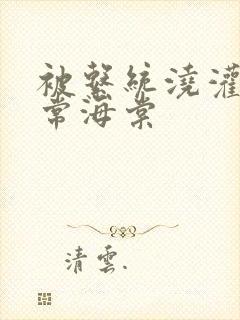 被繫統澆灌
常海棠
清雲.